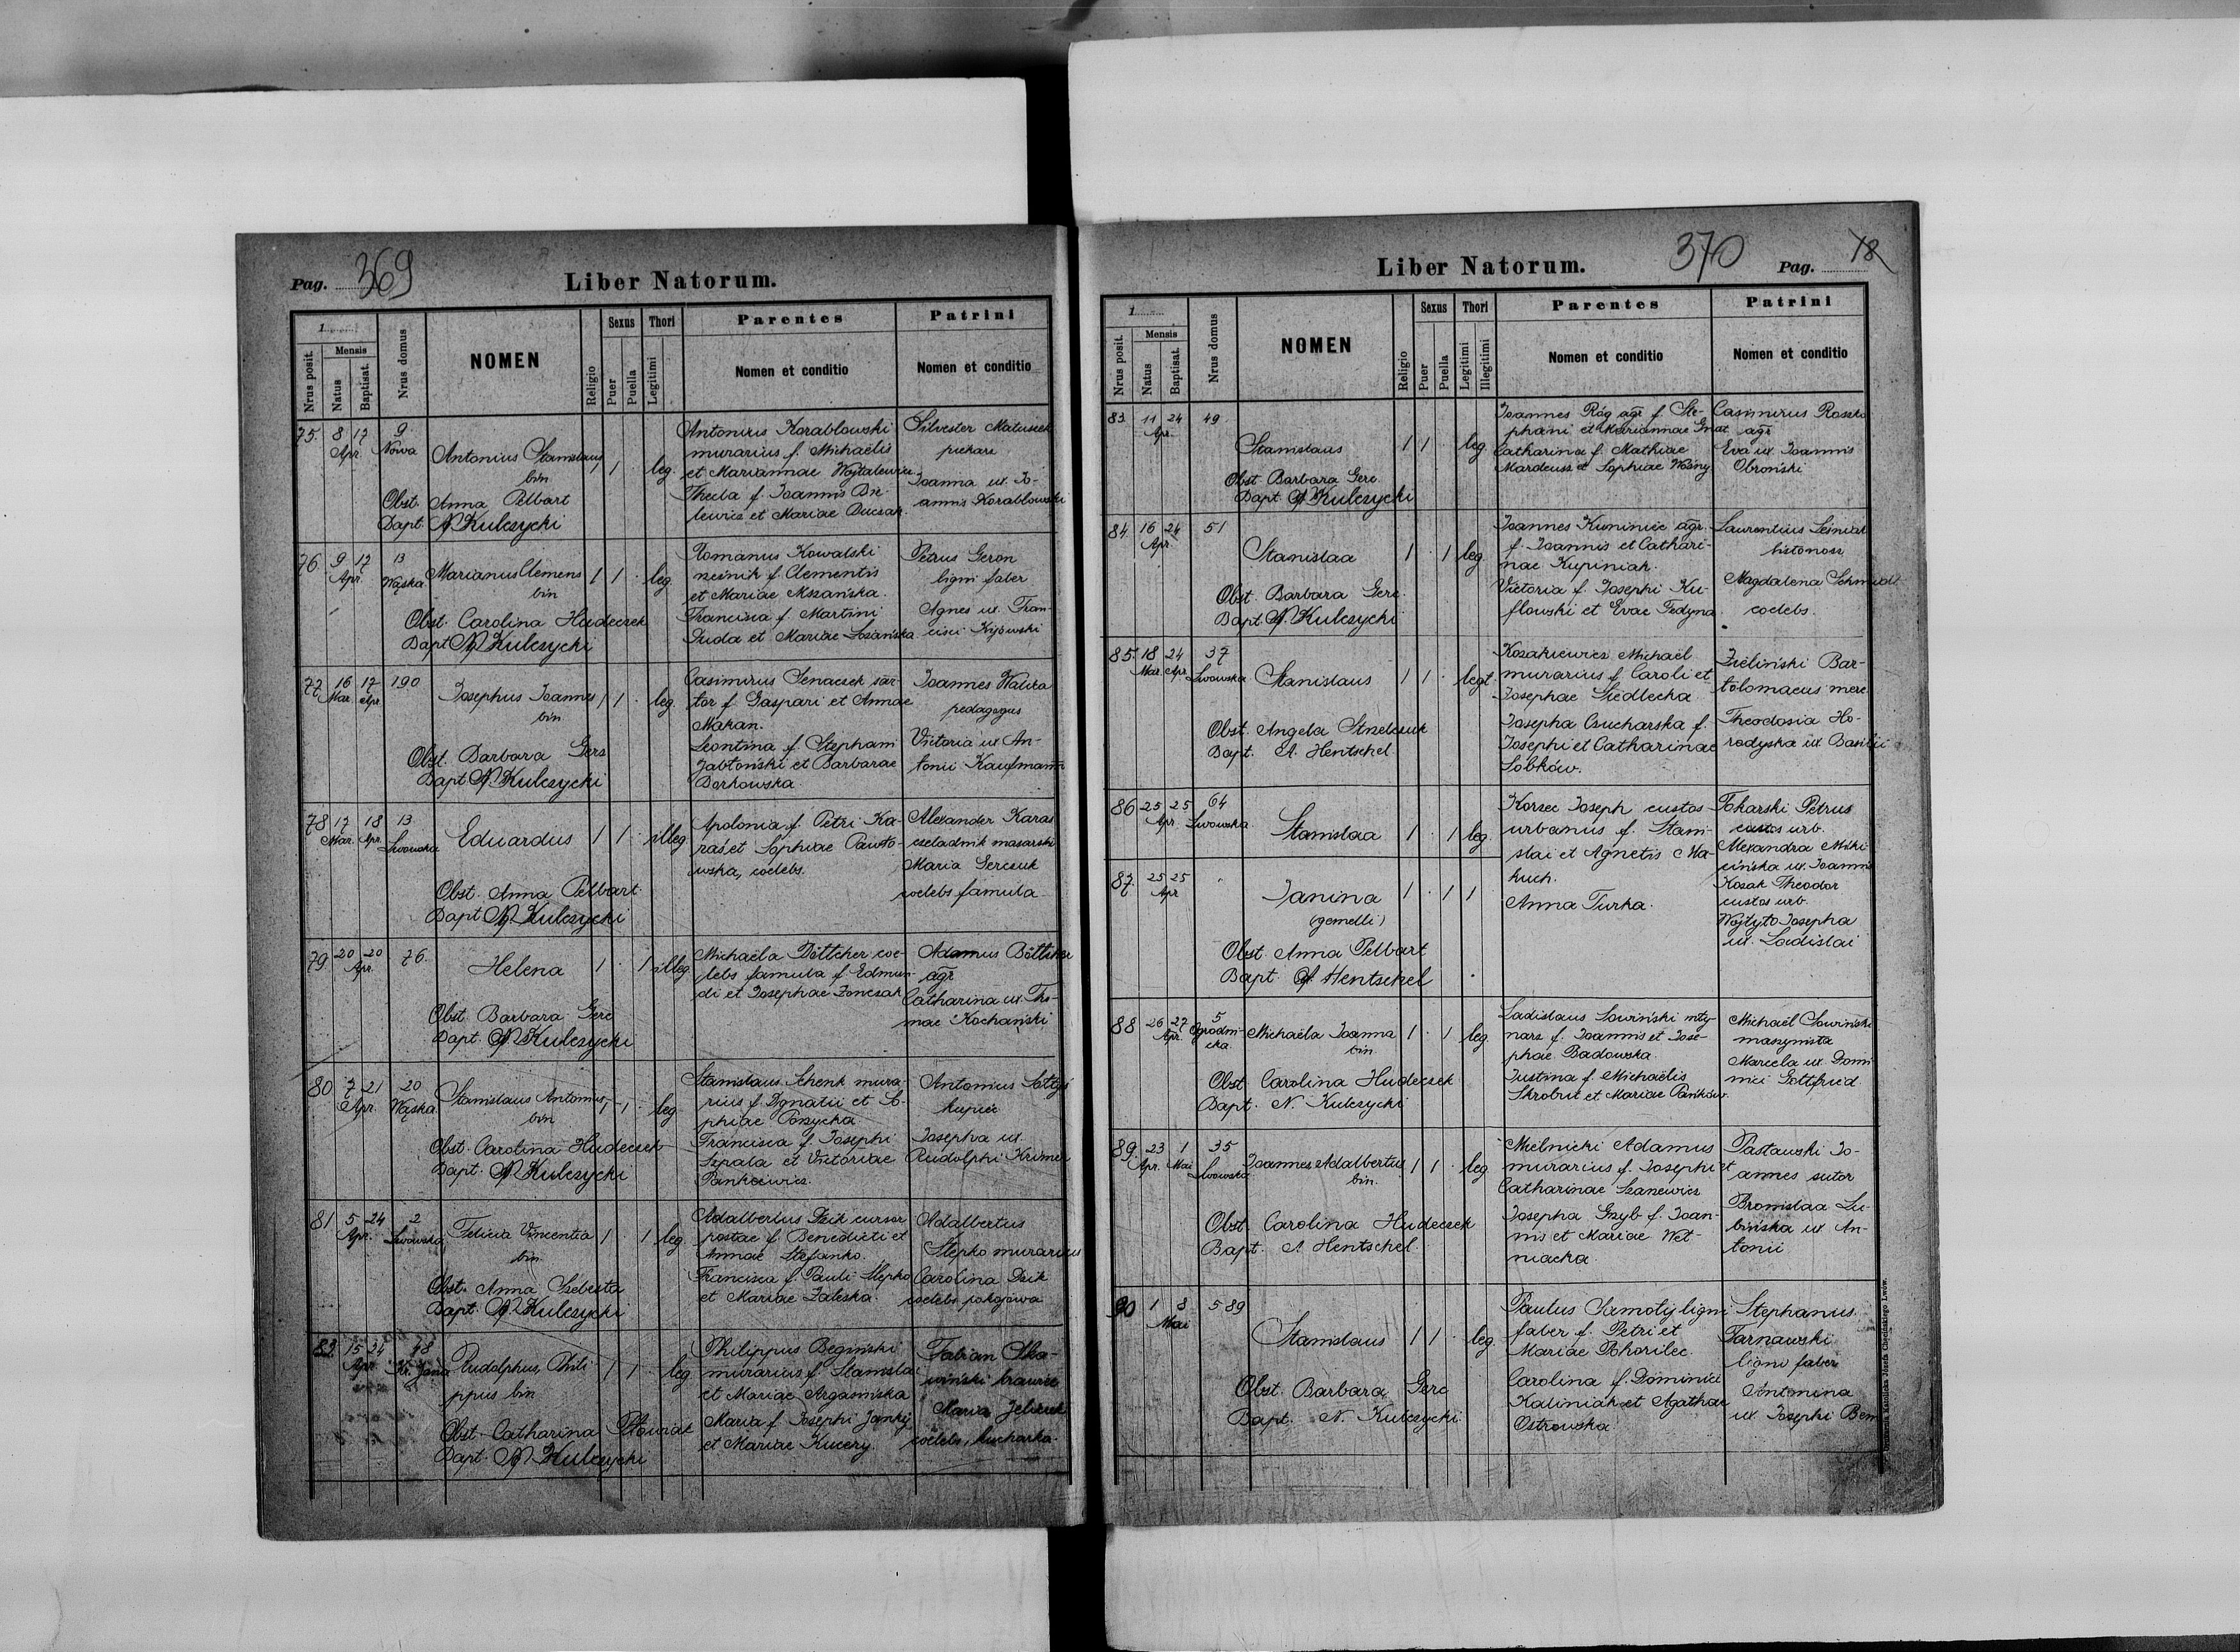 Pag. 369
Liber Natorum.
1
Nrus posit.
Mensis
Natus
Baptisat.
Nrus domus
NOMEN
Religio
Sexus
Puer
Puella
Thori
Legitimi
Parentes
Nomen et conditio
Patrini
Nomen et conditio
75. 8 17 Apr. 9 Nowa
Antonius Stanislaus
bin
1 1 . leg.
Obst. Anna Pelbart
Bapt. N. Kulczycki
Antonius Korablowski
murarius f. Michaëlis
et Mariannae Wojtalewicz
Thecla f. Joannis Bie-
lewicz et Mariae Duczak
Silvester Matuszek
piekarz
Joanna ux. Jo-
annis Korablowski
76. 9 17 Apr. 13 Wąska
Marianus Clemens
bin
1 1 . leg.
Obst. Carolina Hudeczek
Bapt. N. Kulczycki
Romanus Kowalski
rzeźnik f. Clementis
et Mariae Mszańska.
Francisca f. Martini
Duda et Mariae Łozańska
Petrus Geron
ligni faber
Agnes ux. Fran-
cisci Kijowski
77. 16 Mar. 17 Apr. 190
Josephus Joannes
bin
1 1 . leg.
Obst. Barbara Gerc
Bapt. N. Kulczycki
Casimirus Senaczek sar-
tor f. Gaspari et Annae
Makan.
Leontina f. Stephani
Jabłoński et Barbarae
Borkowska.
Joannes Walika
pedagogus
Victoria ux. An-
tonii Kaufmann
78. 17 Mar. 18 Apr. 13 Lwowska
Eduardus
1 1 . illeg
Obst. Anna Pelbart
Bapt. N. Kulczycki
Apolonia f. Petri Ka-
raś et Sophiae Pawło-
wska, coelebs.
Alexander Karaś
czeladnik masarski
Maria Serczuk
coelebs famula
79. 20 20 Apr. 76.
Helena
1 . 1 illeg.
Obst. Barbara Gerc
Bapt. N. Kulczycki
Michaëla Böttcher coe-
lebs famula f. Edmun-
di et Josephae Zonczak
Adamus Böttcher
agr.
Catharina ux. Tho-
mae Kochański
80 7 21 Apr. 20 Wąska
Stanislaus Antonius
bin
1 1 . leg
Obst. Carolina Hudeczek
Bapt. N. Kulczycki
Stanislaus Schenk mura-
rius f. Ignatii et So-
phiae Porzycka
Francisca f. Josephi
Szpala et Victoriae
Pankiewicz.
Antonius Sołtys
kupiec
Josepha ux.
Rudolphi Krimer
81 5 24 Apr. 2 Lwowska
Felicia Vincentia
bin
1 . 1 leg
Obst. Anna Szebesta
Bapt. N. Kulczycki
Adalbertus Dzik cursor
postae f. Benedicti et
Annae Stefanko.
Francisca f. Pauli Slepko
et Mariae Zaleska.
Adalbertus
Slepko murarius
Carolina Dzik
coelebs pokojowa
82. 15 24 Apr. 48 Kr. Jana
Rudolphus Phili
ppus bin
1 1 . leg
Obst. Catharina
Bapt. N. Kulczycki
Philippus Begiński
murarius f. Stanislai
et Mariae Argasińska
Maria f. Josephi Janky
et Mariae Kucery.
Fabian Ska-
wiński krawiec
Maria Jelinek
coelebs, kucharka.
Liber Natorum.
370
Pag. 18
1
Nrus posit.
Mensis
Natus
Baptisat.
Nrus domus
NOMEN
Religio
Sexus
Puer
Puella
Thori
Legitimi
Illegitimi
Parentes
Nomen et conditio
Patrini
Nomen et conditio
83. 11 24 Apr. 49
Stanislaus
1 1 . leg
Obst. Barbara Gerc
Bapt. N. Kulczycki
Joannes Róg agr. f. Ste-
phani et Mariannae Gnat
Catharina f. Mathiae
Mardeusz et Sophiae Woźny
Casimirus Roszko
agr.
Eva ux. Joannis
Obroński
84. 16 24 Apr. 51
Stanislaa
1 . 1 leg
Obst. Barbara Gerc.
Bapt. N. Kulczycki
Joannes Kuminiec agr.
f. Joannis et Cathari-
nae Kupiniak.
Victoria f. Josephi Ku-
flowski et Evae Fedyna.
Laurentius Leśniak
listonosz
Magdalena Schmidt
coelebs.
85. 18 Mar. 24 Apr. 37 Lwowska
Stanislaus
1 1 . legt.
Obst. Angela Strzelczuk
Bapt. A. Hentschel
Kozakiewicz Michaël
murarius f. Caroli et
Josephae Siedlecka
Josepha Czucharska f.
Josephi et Catharinae
Sobków.
Zieliński Bar-
tolomaeus merc.
Theodosia Ho-
rodyska ux. Basilii
86 25 25 Apr. 64 Lwowska
Stanislaa
1 . 1 leg.
87. 25 25 Apr
Janina
(gemelli)
1 . 1 1
Obst. Anna Pelbart
Bapt. A. Hentschel
Korzec Joseph custos
urbanus f. Stani-
slai et Agnetis Ma-
kuch.
Anna Turka.
Tokarski Petrus
custos urb.
Alexandra Miki
cińska ux. Joannis
Kozak Theodor
custos urb.
Wojtyto Josepha
ux. Ladislai
88 26 27 Apr. 5 Ogrodni-
cka.
Michaëla Joanna
bin
1 . 1 leg.
Obst. Carolina Hudeczek
Bapt. N. Kulczycki
Ladislaus Sawiński mły-
narz f. Joannis et Jose-
phae Badowska.
Justina f. Michaëlis
Skrobut et Mariae Pańków.
Michaël Sawiński
maszynista
Marcela ux. Domi
nici Gottfried.
89. 23 Apr. 1 Mai 35 Lwowska
Joannes Adalbertus
bin.
1 1 . leg.
Obst. Carolina Hudeczek
Bapt. A. Hentschel.
Mielnicki Adamus
murarius f. Josephi et
Catharinae Szanewicz
Josepha Grzyb f. Joan-
nis et Mariae Wet-
niacka.
Pastawski Jo-
annes sutor
Bronislaa Lu-
bińska ux. An-
tonii
90 1 8 Mai 589
Stanislaus
1 1 . leg.
Obst. Barbara Gerc
Bapt. N. Kulczycki
Paulus Samotyj ligni
faber f. Petri et
Mariae Pohorilec.
Carolina f. Dominici
Kaliniak et Agathae
Ostrowska.
Stephanus
Tarnawski
ligni faber
Antonina
ux. Josephi Bem
Drukarnia Katolicka Józefa Chęcińskiego Lwów.